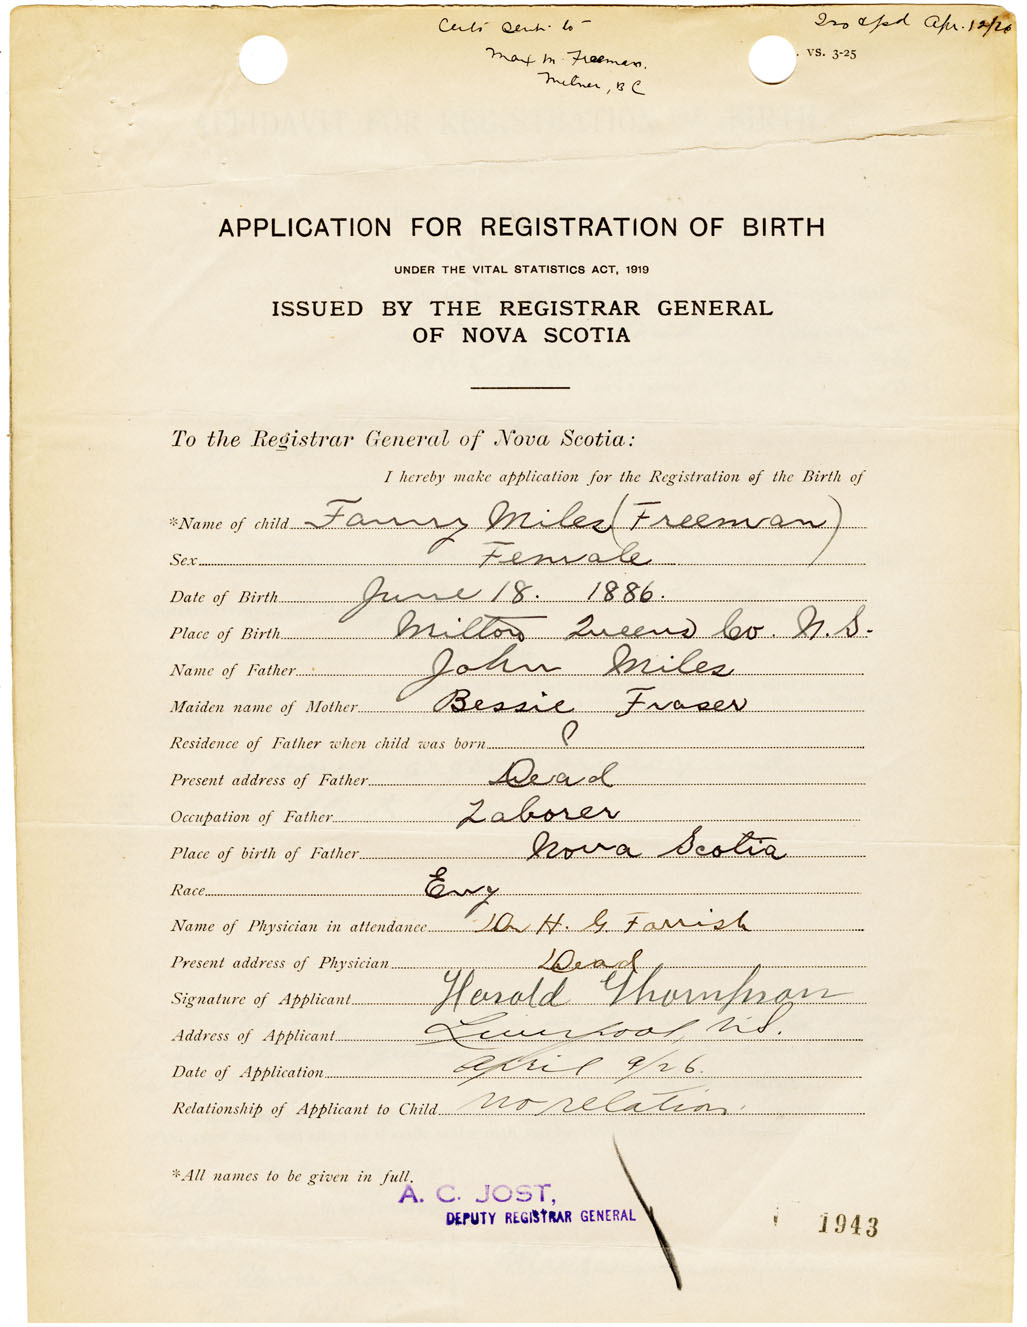 Certs sent to
Max M. Freeman,
Milner, BC
Apr. 12/26
VS. 3-25
APPLICATION FOR REGISTRATION OF BIRTH
UNDER THE VITAL STATISTICS ACT, 1919
ISSUED BY THE REGISTRAR GENERAL
OF NOVA SCOTIA
To the Registrar General of Nova Scotia:
I hereby make application for the Registration of the Birth of
*Name of child Fanny Miles (Freeman)
Sex Female
Date of Birth June 18. 1886.
Place of Birth Milton Queens Co. N.S.
Name of Father John Miles
Maiden name of Mother Bessie Fraser
Residence of Father when child was born ?
Present address of Father Dead
Occupation of Father Laborer
Place of birth of Father Nova Scotia
Race Eng
Name of Physician in attendance Dr H. G. Farrish
Present address of Physician Dead
Signature of Applicant Harold Thompson
Address of Applicant Liverpool, N.S.
Date of Application April 9/26.
Relationship of Applicant to Child no relation.
*All names to be given in full.
A. C. JOST,
DEPUTY REGISTRAR GENERAL
1943